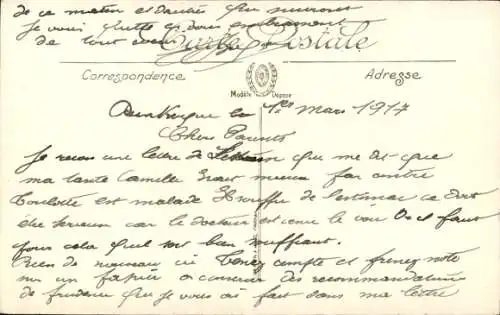 de ce matin et d'autres que suivront
Je vous quitte en vous embrassant
de tout coeur
Carte Postale
Correspondance
Adresse
Modèle Déposé
Dunkerque le 1er Mars 1917
Chers Parents
Je reçois une lettre de que me dit que
ma tante Camille mieux par contre
est malade souffre de l'estomac ce doit
être sérieux car le docteur est venu le voir Il faut
pour cela qu'il soit bien souffrant.
Rien de nouveau ici Tenez compte et prenez note
sur un papier a conserver des recommandations
de prudence que je vous ai fait dans ma lettre